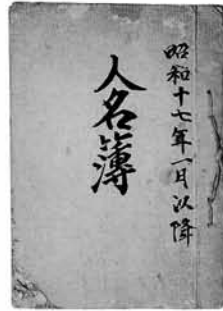 昭和十七年一月以降
人名簿